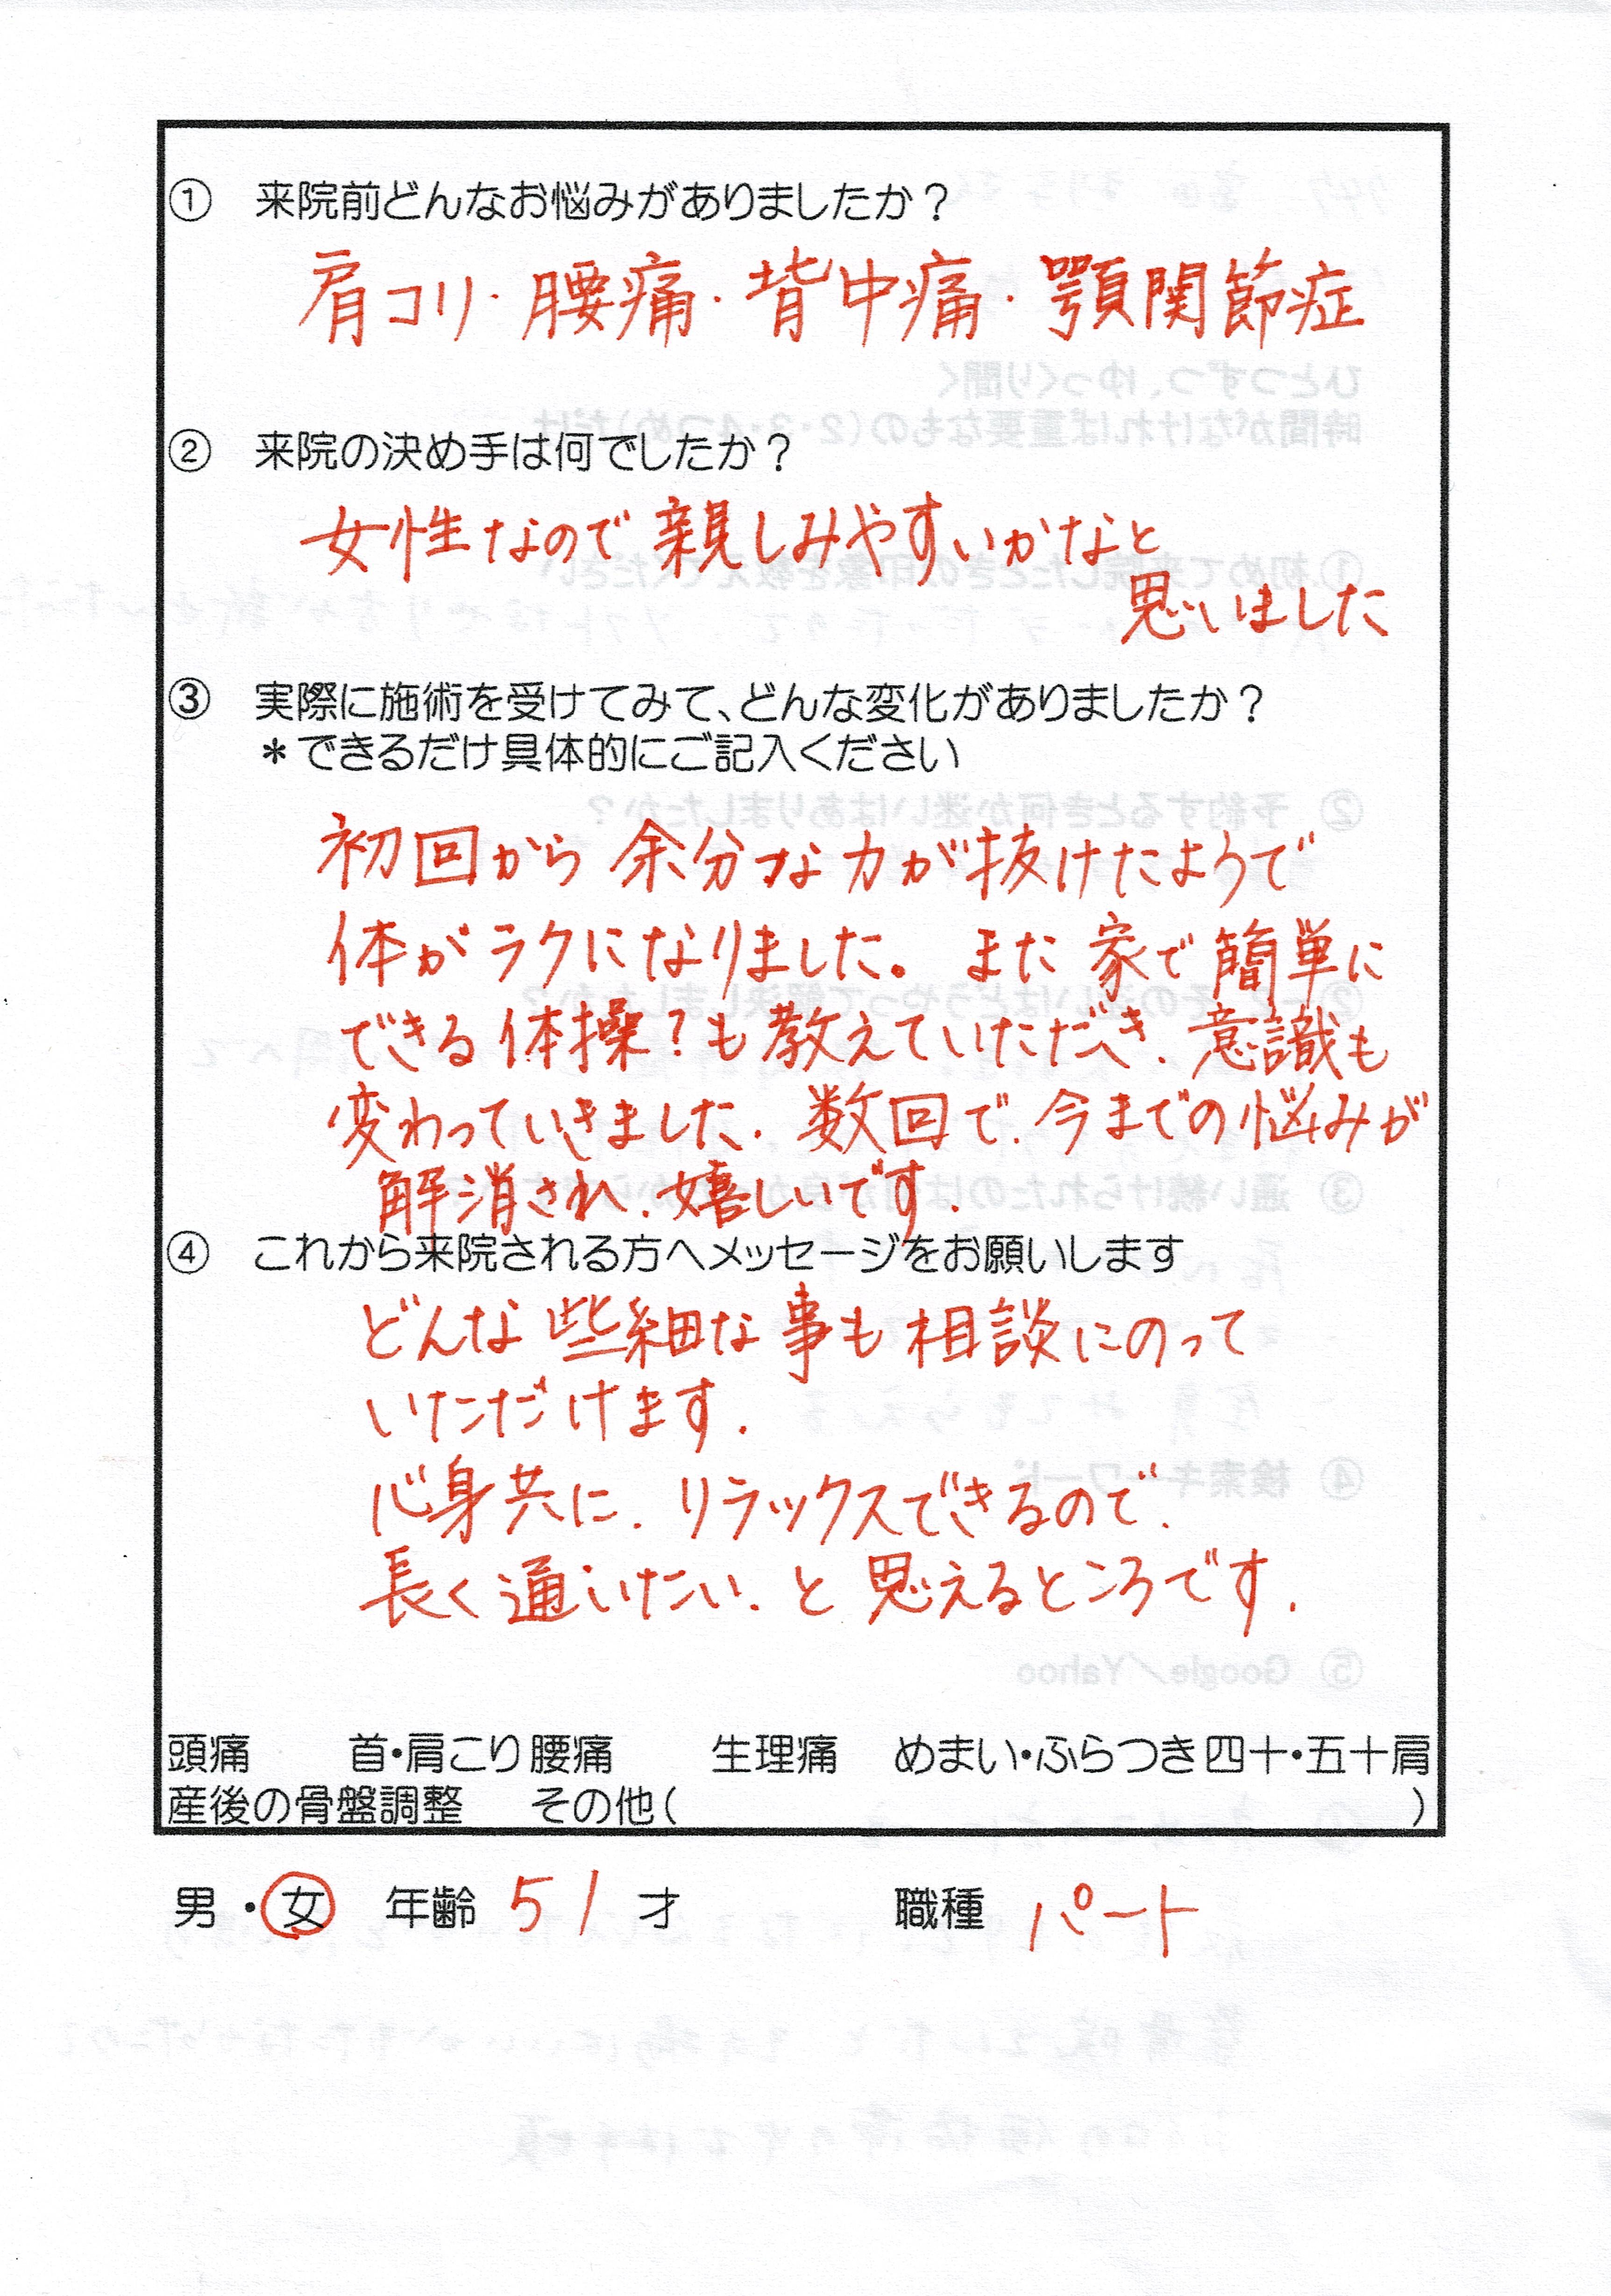 ① 来院前どんなお悩みがありましたか？
肩コリ・腰痛・背中痛・顎関節症
② 来院の決め手は何でしたか？
女性なので親しみやすいかなと
思いました
③ 実際に施術を受けてみて、どんな変化がありましたか？
＊できるだけ具体的にご記入ください
初回から余分な力が抜けたようで
体がラクになりました。また家で簡単に
できる体操？も教えていただき、意識も
変わっていきました。数回で、今までの悩みが
解消され、嬉しいです。
④ これから来院される方へメッセージをお願いします
どんな些細な事も相談にのって
いただけます。
心身共に、リラックスできるので、
長く通いたい、と思えるところです。
頭痛 首・肩こり 腰痛 生理痛 めまい・ふらつき 四十・五十肩
産後の骨盤調整 その他（ ）
男・女 年齢 51 才 職種 パート